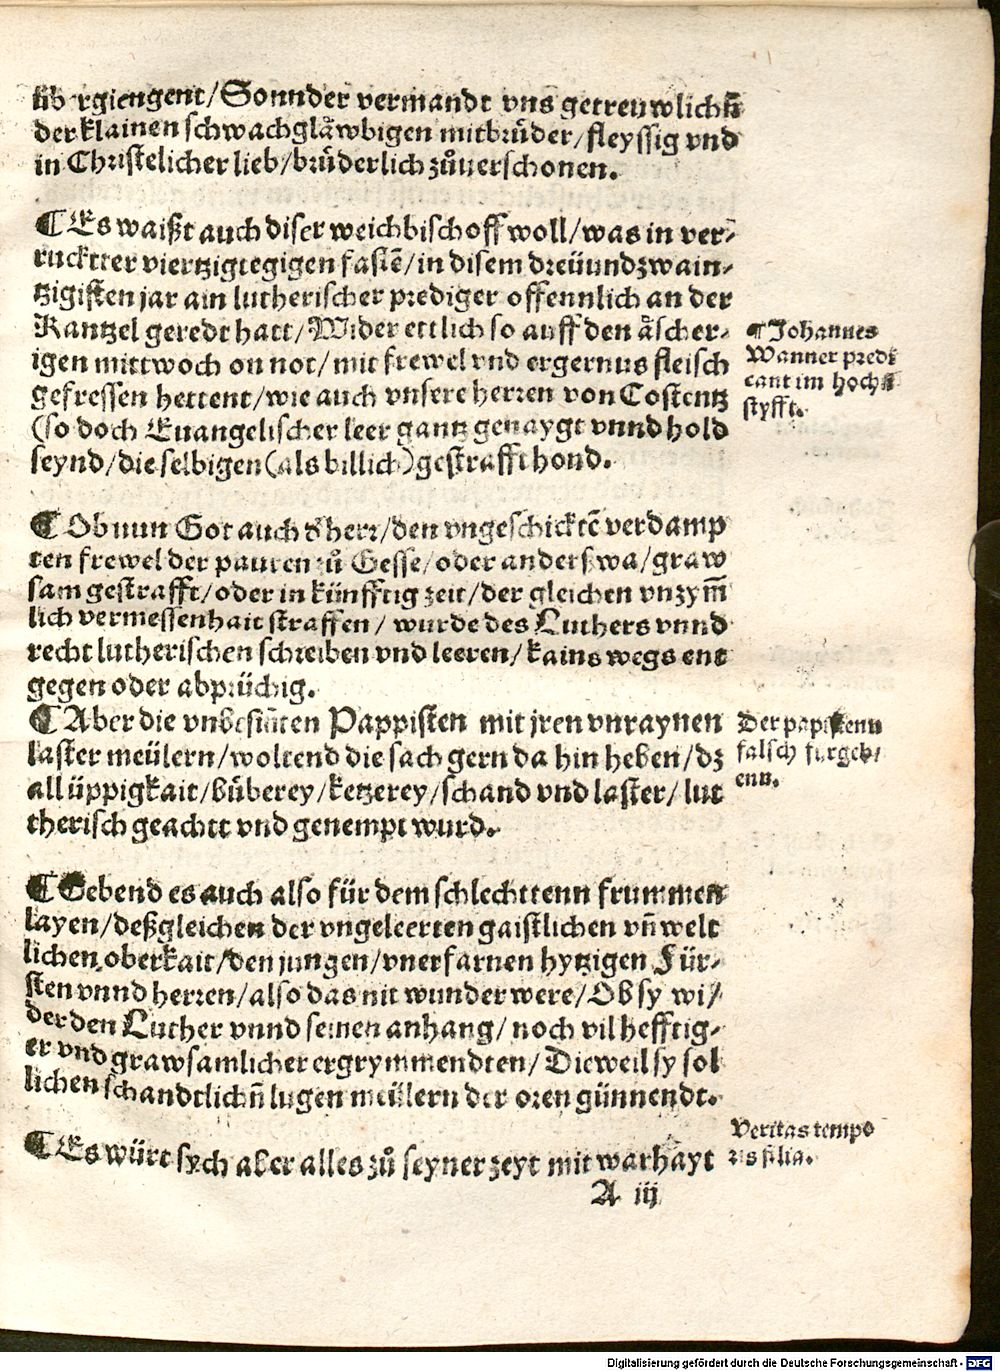 übergiengent/Sonnder vermandt vns getreuwlichn̄
der klainen schwachglaͤwbigen mitbruͤder/fleyssig vnd
in Christelicher lieb/bruͤderlich zůuerschonen.
¶Es waißt auch diser weichbischoff woll/was in ver⸗
rucktter viertzigtegigen fastē/in disem dreüundzwain⸗
tzigisten jar ain lutherischer prediger offennlich an der
Kantzel geredt hatt/Wider ettlich so auff den aͤscher⸗
igen mittwoch on not/mit frewel vnd ergernus fleisch
gefressen hettent/wie auch vnsere herren von Costentz
(so doch Euangelischer leer gantz genaygt vnnd hold
seynd/die selbigen(als billich)gestrafft hond.
¶Johannes
Wanner predi
cant im hoch⸗
styfft.
¶Ob nun Got auch d' herr/den vngeschicktē verdamp
ten frewel der pauren zů Hesse/oder anderßwa/graw
sam gestrafft/oder in künfftig zeit/der gleichen vnzym̄
lich vermessenhait straffen/ wurde des Luthers vnnd
recht lutherischen schreiben vnd leeren/kains wegs ent
gegen oder abprüchig.
¶Aber die vnbesiñten Pappisten mit jren vnraynen
laster meülern/woltend die sach gern da hin heben/dz
all üppigkait/büberey/ketzerey/schand vnd laster/lut
therisch geachtt vnd genempt wurd.
Der papistenn
falsch furgeb⸗
enn.
¶Gebend es auch also für dem schlechttenn frummen
layen/deßgleichen der vngeleerten gaistlichen vn̄ welt
lichen oberkait/den jungen/vnerfarnen hytzigen Für⸗
sten vnnd herren/also das nit wunder were/Ob sy wi⸗
der den Luther vnnd seinen anhang/noch vil hefftig⸗
er vnd grawsamlicher ergrymmendten/Dieweil sy sol
lichen schandtlichn̄ lugen meülern der oren günnendt.
¶Es würt sych aber alles zů seyner zeyt mit warhayt
Veritas tempo
ris filia.
A iij
Digitalisierung gefördert durch die Deutsche Forschungsgemeinschaft - DFG